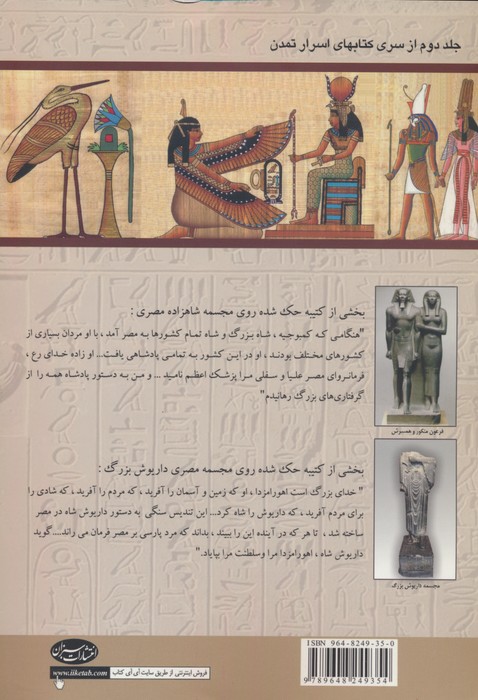 جلد دوم از سری کتابهای اسرار تمدن
بخشی از کتیبه حک شده روی مجسمه شاهزاده مصری :
"هنگامی که کمبوجیه ، شاه بزرگ و شاه تمام کشورها به مصر آمد ، با او مردان بسیاری از
کشورهای مختلف بودند ، او در این کشور به تمامی پادشاهی یافت... او زاده خدای رع ،
فرمانروای مصر علیا و سفلی مرا پزشک اعظم نامید ... و من به دستور پادشاه همه را از
گرفتاری‌های بزرگ رهانیدم"
فرعون منکور و همسرش
بخشی از کتیبه حک شده روی مجسمه مصری داریوش بزرگ :
" خدای بزرگ است اهورامزدا ، او که زمین و آسمان را آفرید ، که مردم را آفرید ، که شادی را
برای مردم آفرید ، که داریوش را شاه کرد... این تندیس سنگی به دستور داریوش شاه در مصر
ساخته شد ، تا هر که در آینده این را ببیند ، بداند که مرد پارسی بر مصر فرمان می راند.... گوید
داریوش شاه ، اهورامزدا مرا و سلطنت مرا بپایاد."
مجسمه داریوش بزرگ
ISBN 964-8249-35-0
9 789648 249354
انتشارات سبزان
www.iiketab.com
فروش اینترنتی از طریق سایت آی آی کتاب